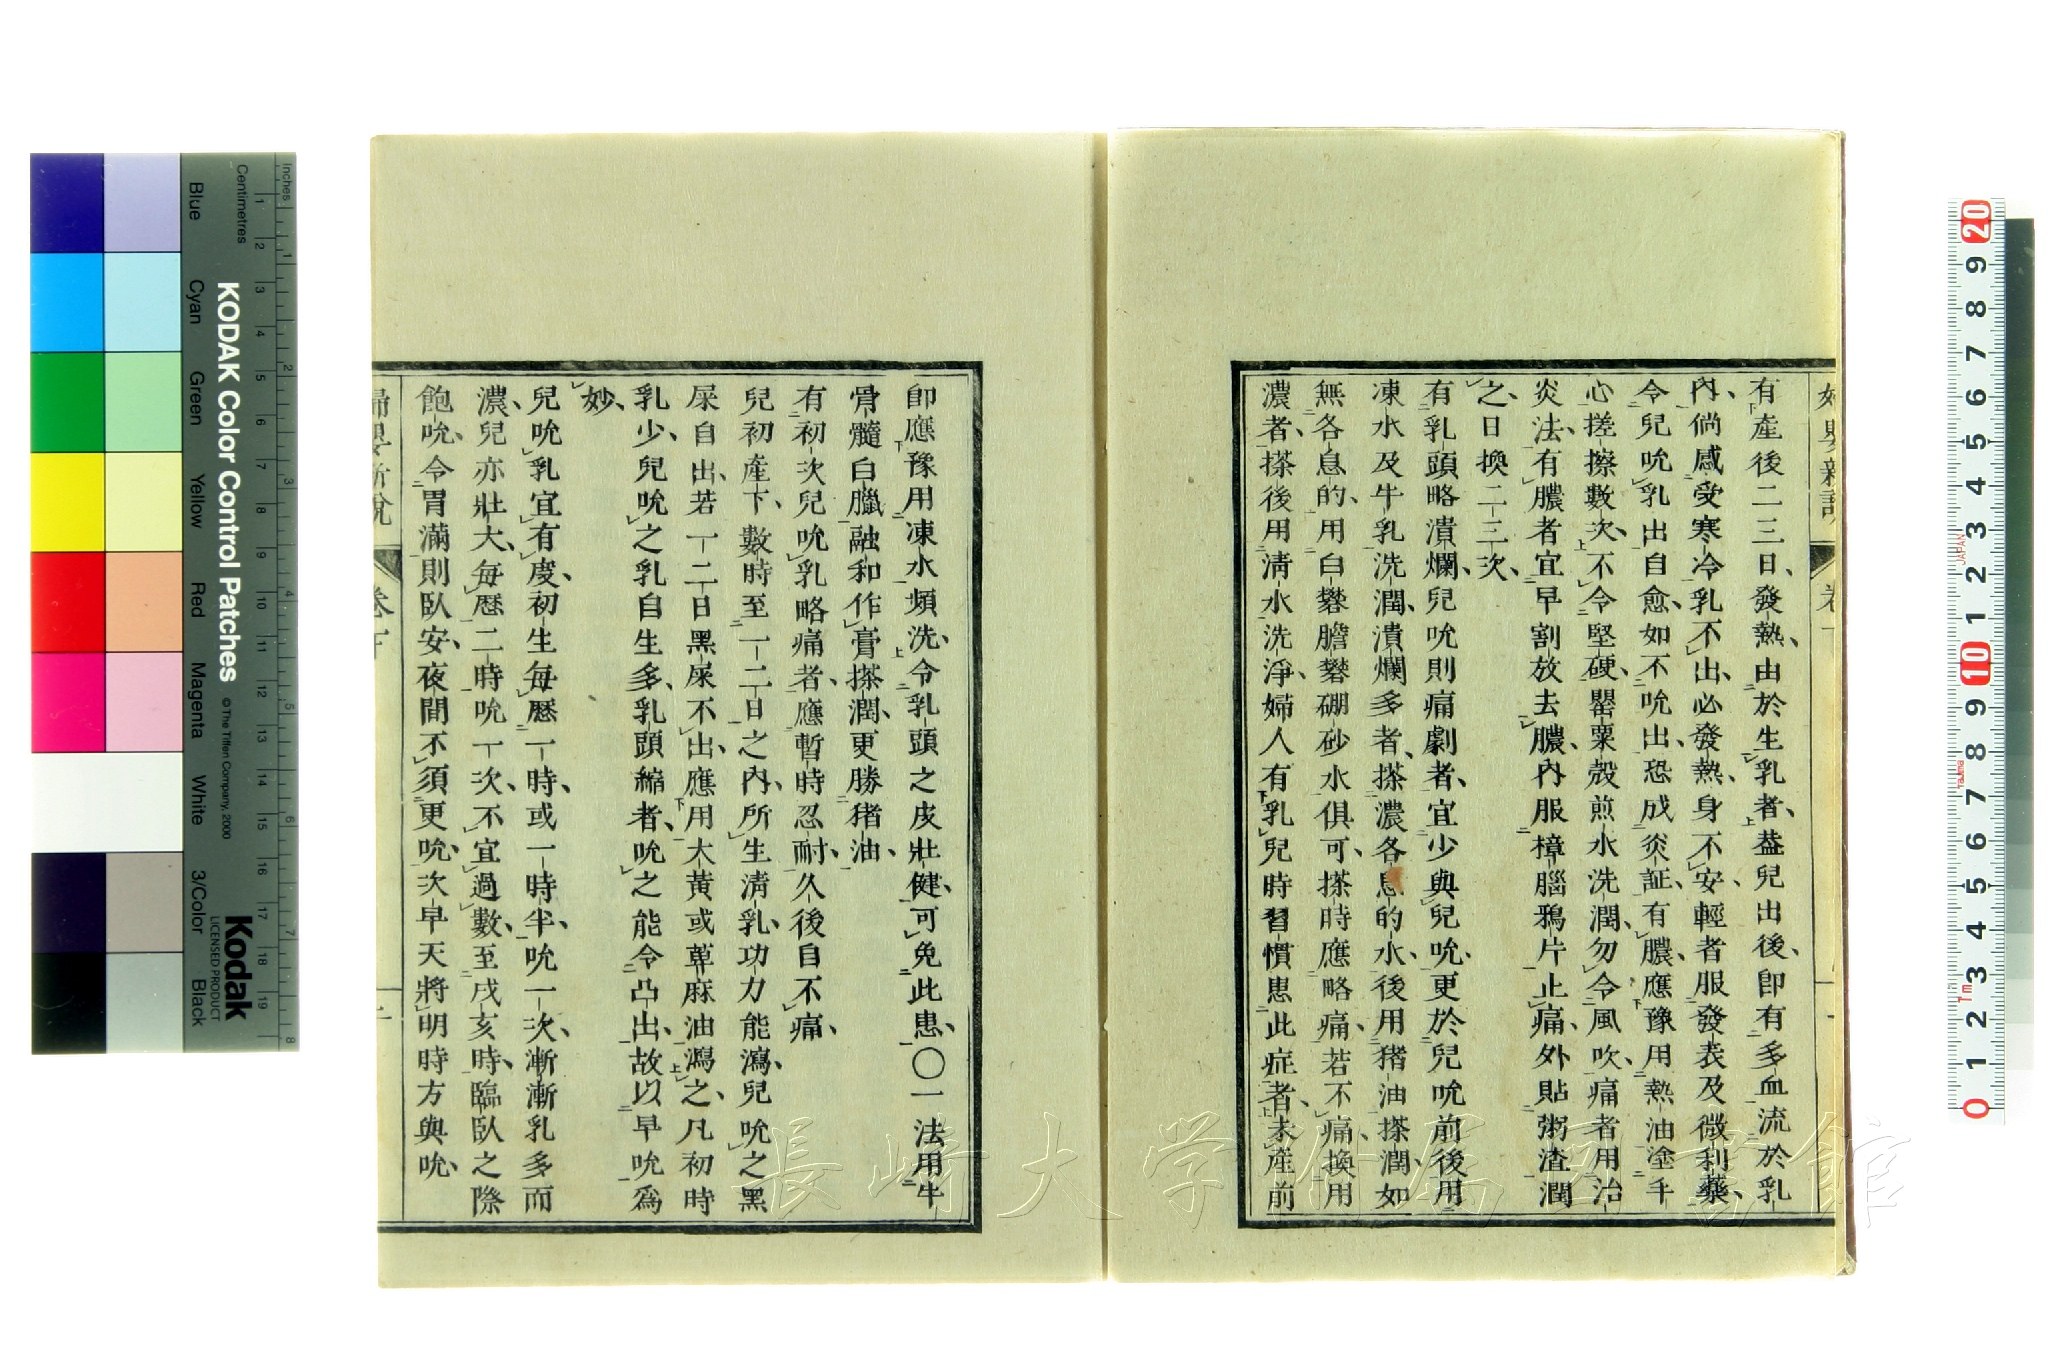 有產後二三日、發熱、由於生乳者、葢兒出後、卽有多血流於乳
內、倘感受寒冷乳不出、必發熱、身不安、輕者服發表及微利藥、
令兒吮乳出自愈、如不吮出、恐成炎証、有膿、應豫用熱油塗手
心搓擦數次、不令堅硬、罌粟殼煎水洗潤、勿令風吹、痛者用治
炎法、有膿者宜早割放去膿、內服樟腦鴉片止痛、外貼粥渣潤
之、日換二三次、
有乳頭略潰爛、兒吮則痛劇者、宜少與兒吮、更於兒吮前後用
凍水及牛乳洗潤、潰爛多者、搽濃各息的水、後用猪油搽潤、如
無各息的、用白礬膽礬硼砂水俱可、搽時應略痛、若不痛、換用
濃者、搽後用淸水洗淨、婦人有乳兒時習慣患此症者、未產前
卽應豫用凍水頻洗、令乳頭之皮壯健、可免此患、〇一法用牛
骨髓白臘融和作膏搽潤、更勝猪油、
有初次兒吮乳略痛者、應暫時忍耐、久後自不痛、
兒初產下、數時至一二日之內、所生淸乳、功力能瀉、兒吮之黑
屎自出、若一二日黑屎不出、應用大黃或萆麻油瀉之、凡初時
乳少、兒吮之乳自生多、乳頭縮者、吮之能令凸出、故以早吮爲
妙、
兒吮乳宜有度、初生每歷一時、或一時半、吮一次、漸漸乳多而
濃、兒亦壯大、每歷二時吮一次、不宜過數、至戌亥時、臨臥之際
飽吮、令胃滿則臥安、夜間不須更吮、次早天將明時方與吮、
婦嬰新說
卷下
KODAK Color Control Patches
© The Tiffen Company, 2000
Kodak
LICENSED PRODUCT
Inches
Centimetres
Blue
Cyan
Green
Yellow
Red
Magenta
White
3/Color
Black
JAPAN
長崎大学附属図書館